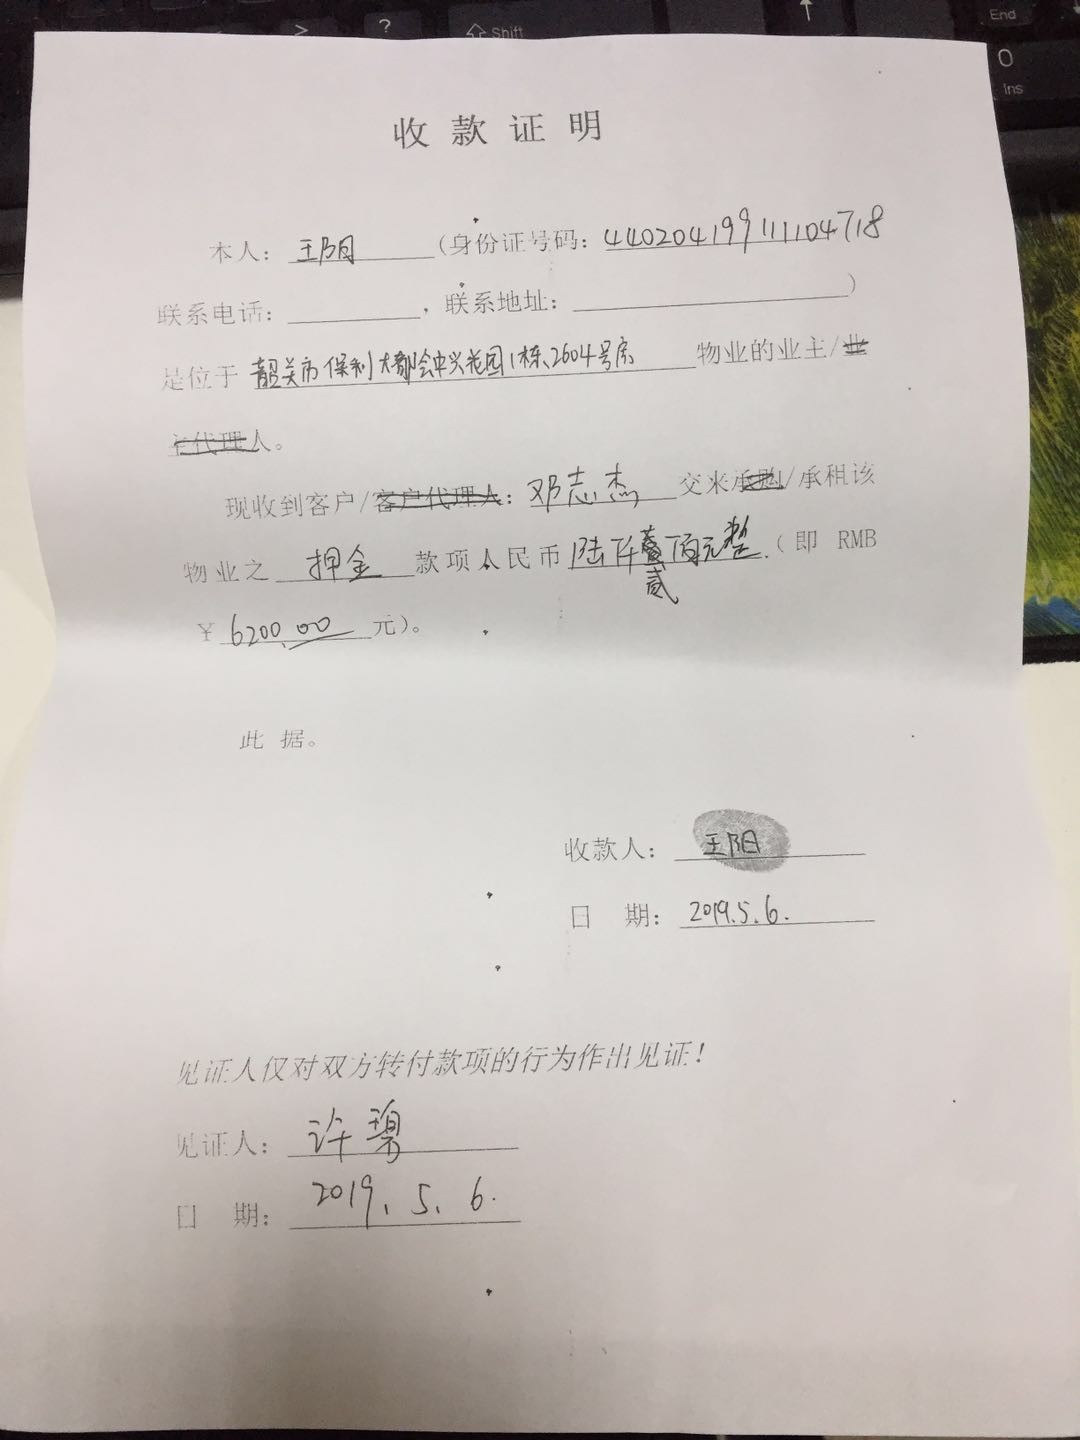 收款证明
本人：王阳（身份证号码：440204199111104718
联系电话：，联系地址：）
是位于韶关市保利大都会中兴花园1栋2604号房物业的业主/业
主代理人。
现收到客户/客户代理人：邓志杰交来承购/承租该
物业之押金款项人民币陆仟贰佰元整（即 RMB
￥6200.00元）。
此据。
收款人：王阳
日期：2019.5.6.
见证人仅对双方转付款项的行为作出见证！
见证人：许碧
日期：2019.5.6.
Shift
End
0
Ins
?